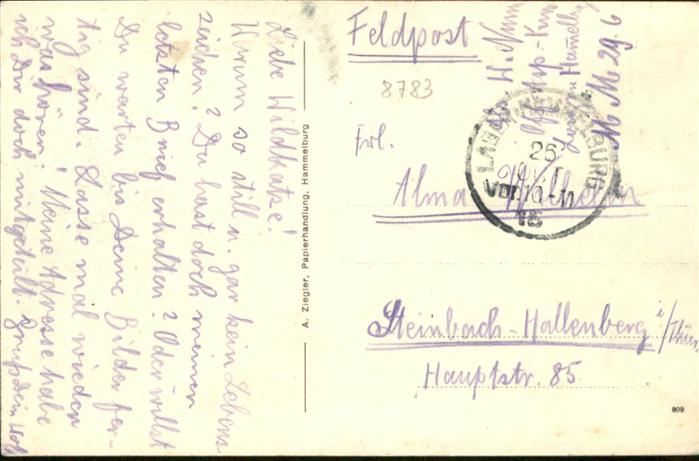 Liebe Wildkatze!
Warum so still u. gar kein Lebens-
zeichen? Du hast doch meinen
letzten Brief erhalten? Oder willst
Du warten bis Deine Bilder fer-
tig sind. Lasse mal wieder
was hören. Meine Adresse habe
ich Dir doch mitgeteilt. Gruß Dein
A. Ziegler, Papierhandlung, Hammelburg
Feldpost
8783
Frl.
Alma Wilhelm
Steinbach-Hallenberg i/Thür
Hauptstr. 85
LAGER HAMMELBURG
26
Vor. 10-11
18
W.
29. 6
809